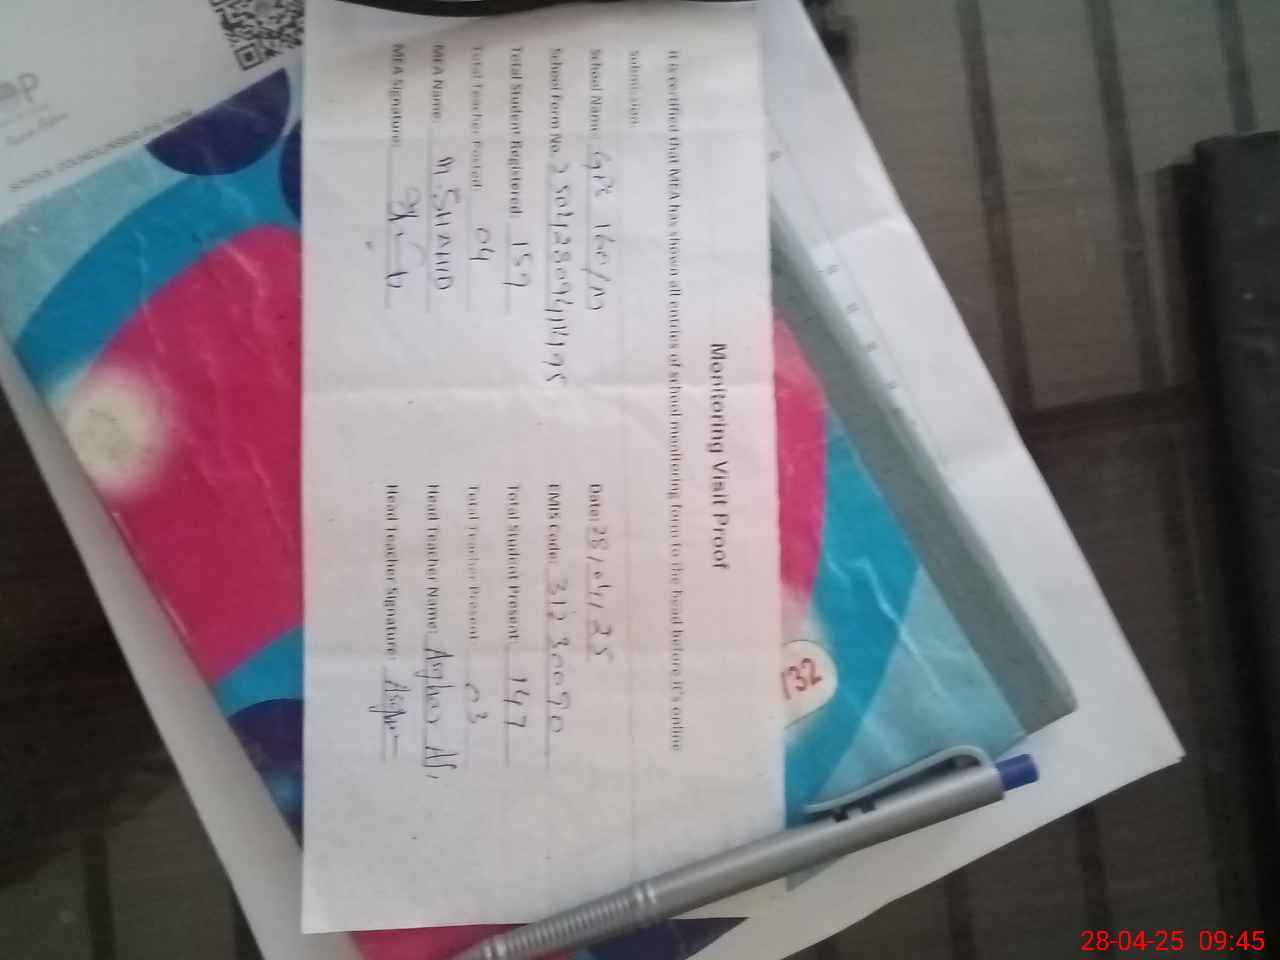 Monitoring Visit Proof
It is certified that MEA has shown all entries of school monitoring form to the head before it's online
submission.
School Name: GPS 160/M Date: 28/04/25
School Form No. EMIS Code: 31230090
Total Student Registered: 159 Total Student Present: 147
Total Teacher Posted: 04 Total Teacher Present: 03
MEA Name: M. SHAHID Head Teacher Name: Asghar Ali
MEA Signature: Head Teacher Signature: Asghar
132
28-04-25 09:45